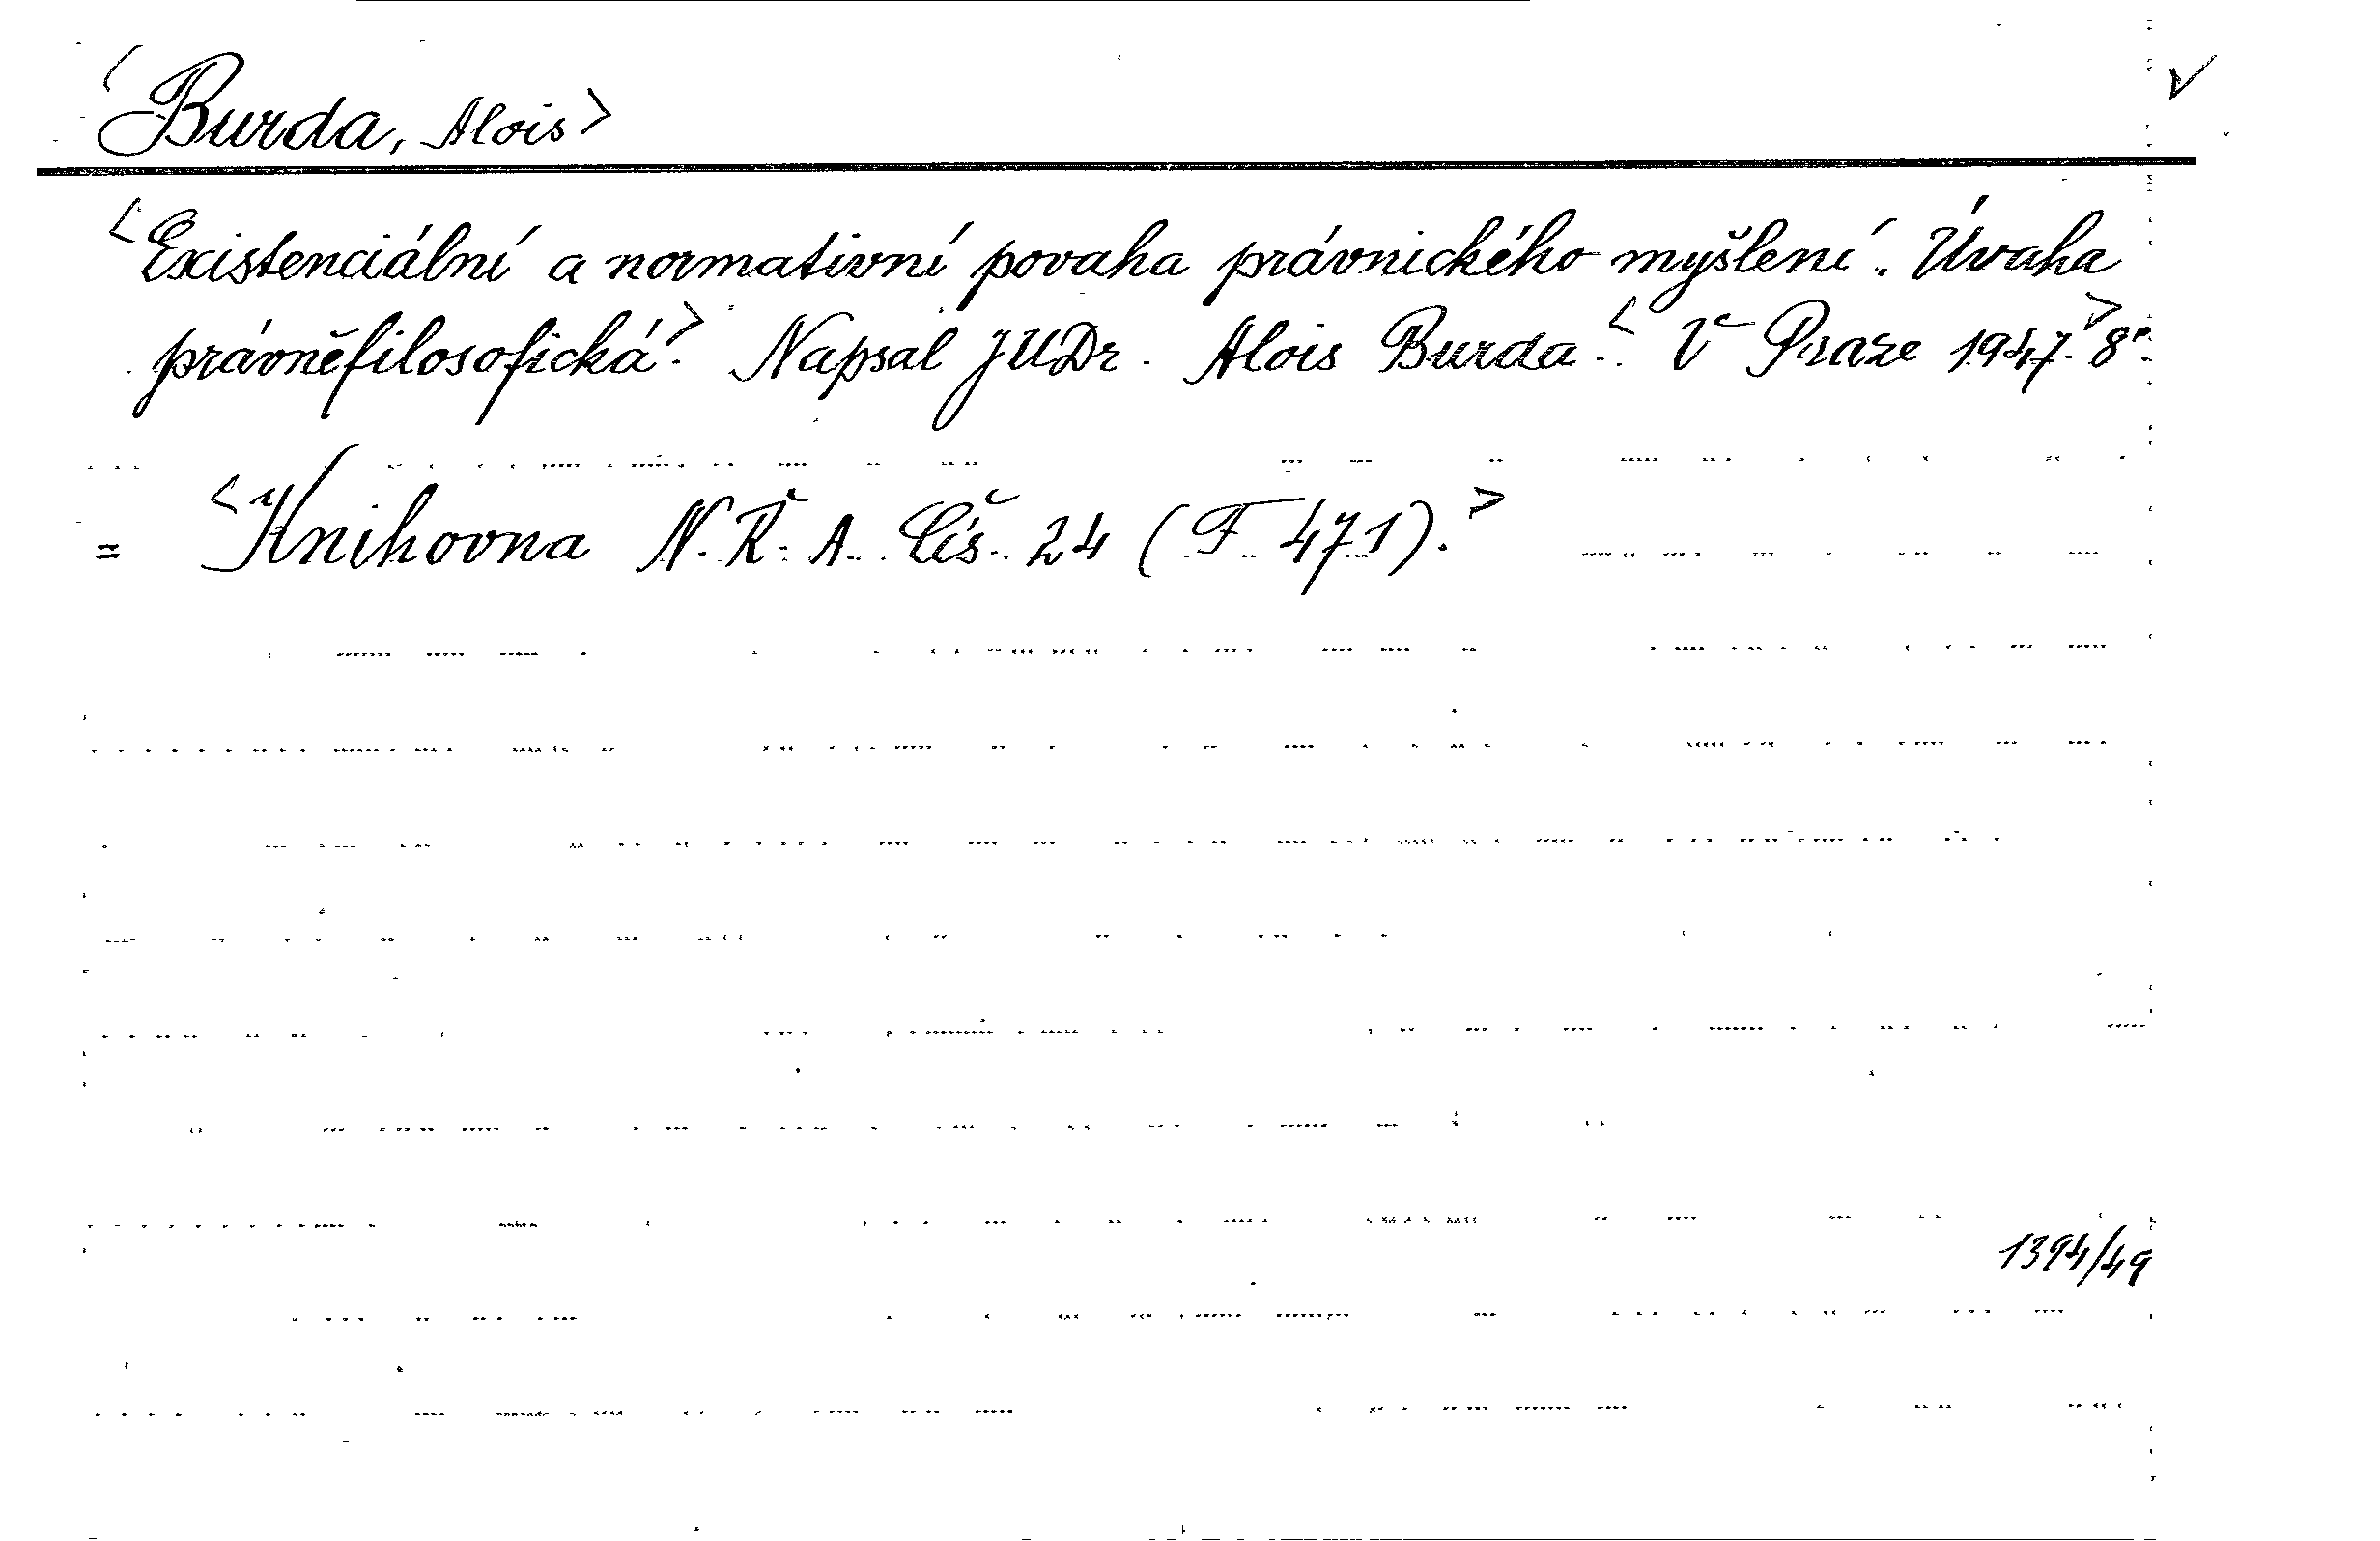 <Burda, Alois>
<Existenciální a normativní povaha právnického myšlení. Úvaha
právněfilosofická.> Napsal JUDr. Alois Burda. <V Praze 1947.> 8°.
= <Knihovna N. Ř. A. Čís. 24 (F 471).>
1394/49